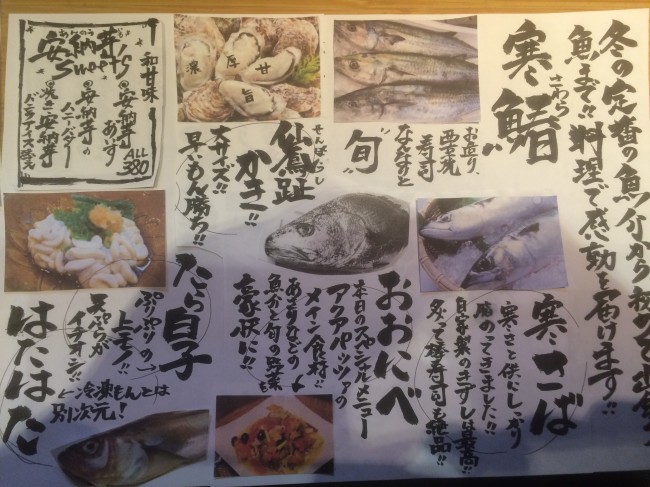 冬の定番の魚介から
魚まで!!料理で感動を届けます!!
寒鰆
さわら
お造り、
西京焼
寿司
などなど
"旬"
甘
厚
濃
旨
せんぽうし
仙鳳趾
かき!!
大サイズ!!
早いもん勝ち!!
和甘味
あんのういも
安納芋
Sweet's
安納芋アイス
安納芋の
ハニーバター
焼き安納芋
バニラアイス添え
ALL
380
寒さば
寒さと供にしっかり
脂のってきました!!
自家製のきずしは最高!!
炙って棒寿司も絶品!!
おおにべ
本日のスペシャルメニュー
アクアパッツァの
メイン食材!!
あさりなどの
魚介と旬の野菜を
豪快に!!
たら白子
ぷりぷりの
上モノ!!
天ぷらが
イチオシ!!
←冷凍もんとは
別次元!
はたはた